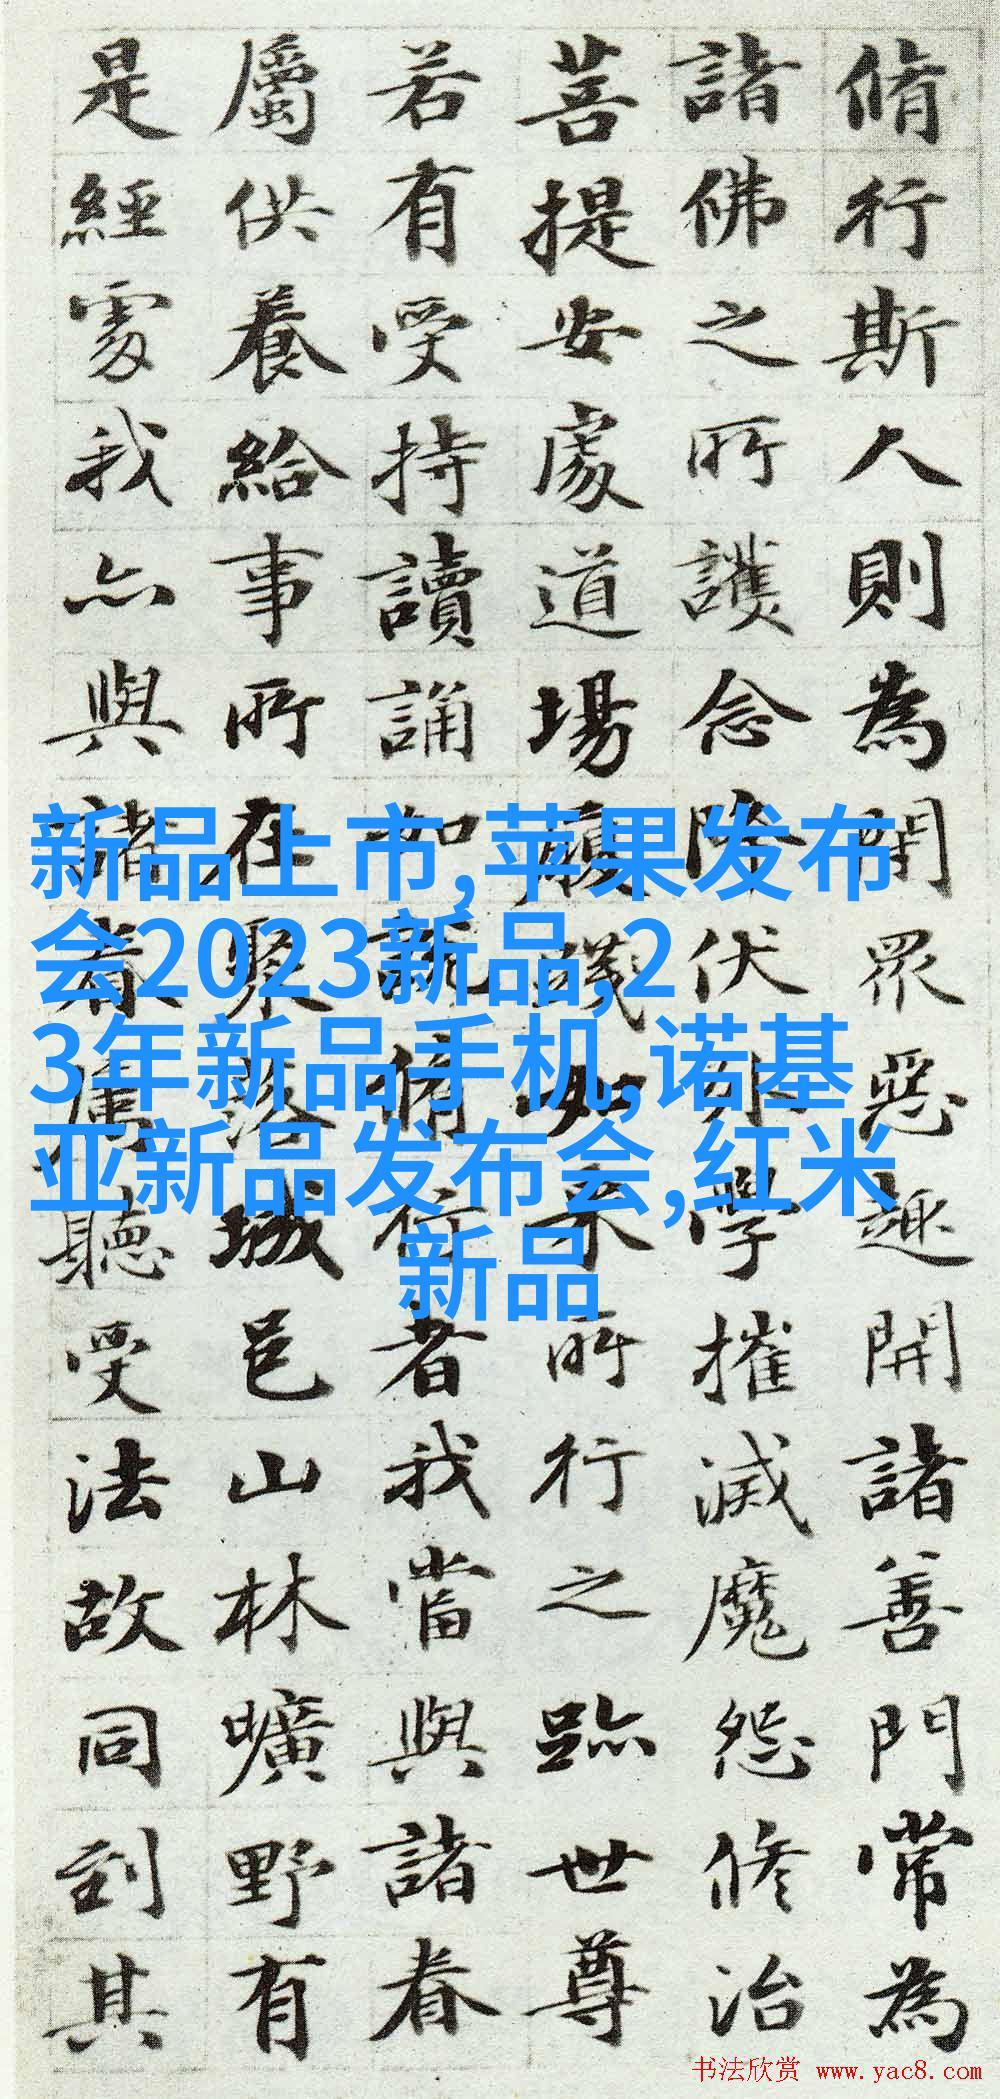 脩行斯人則為閇眾惡趣開諸善門常為
諸佛之所護念降伏外學摧滅魔怨修治
菩提安處道場履踐如来所行之跡世尊
若有受持讀誦如說脩行者我當與諸眷
屬供養給事所在聚落城邑山林曠野有
是經處我亦與諸眷屬聽受法故同到其
新品上市,苹果发布
会2023新品,2
3年新品手机,诺基
亚新品发布会,红米
新品
书法欣赏 www.yac8.com